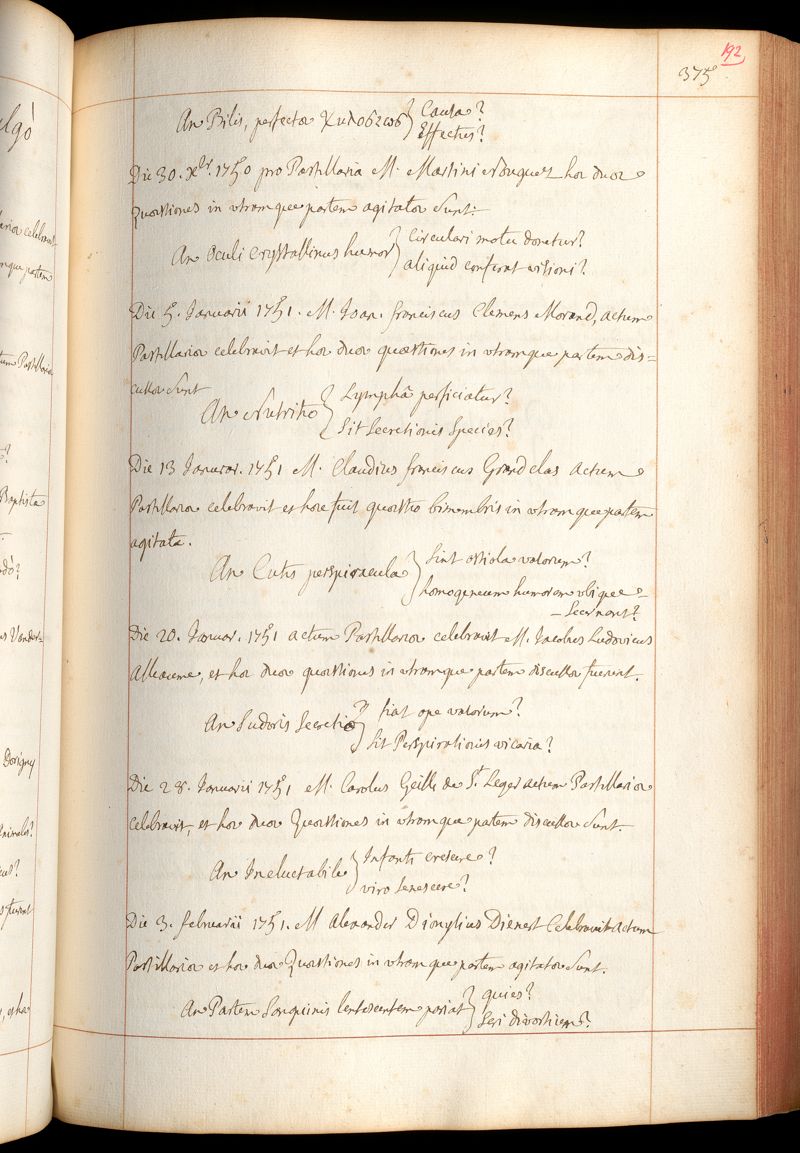 192
375
An Bilis, perfectæ χυλοδεως } Causa?
Effectus?
Die 30. Xbr. 1750 pro Pastillaria M. Martini hæ duæ
Quæstiones in utramque partem agitatæ Sunt:
An Oculi Crystallinus humor } circulari motu donetur?
aliquid conferat visioni?
Die 5. Januarii 1751. M. Joan. franciscus Clemens Morand, actum
Pastillariæ celebravit et hæ duæ quæstiones in utramque partem dis=
cussæ Sunt
An Nutritio } Lymphâ perficiatur?
Sit Secretionis Species?
Die 13 Januar. 1751 M. Claudius franciscus Grandclas actum
Pastillariæ celebravit et hæc fuit quæstio bimembris in utramque partem
agitata.
An Cutis perspiracula } Sint ostiola vasorum?
homogeneum humorem ubique
- Secernant?
Die 20. Januar. 1751 actum Pastillariæ celebravit M. Jacobus Ludovicus
Alleaume, et hæ duæ quæstiones in utramque partem discussæ fuerunt.
An Sudoris Secretio } fiat ope vasorum?
Sit Perspirationis vicaria?
Die 28. Januarii 1751 M. Carolus Geille de St. Leger actum Pastillariæ
Celebravit, et hæ duæ Quæstiones in utramque patem discussæ Sunt.
An Ineluctabile } Infanti crescere?
viro Senescere?
Die 3. februarii 1751. M Alexander Dionysius Dienert Celebravit actum
Pastillariæ et hæ duæ Quæstiones in utramque partem agitatæ Sunt.
An Partem Sanguinis lentescentem pariat } quies?
Seri divortium?